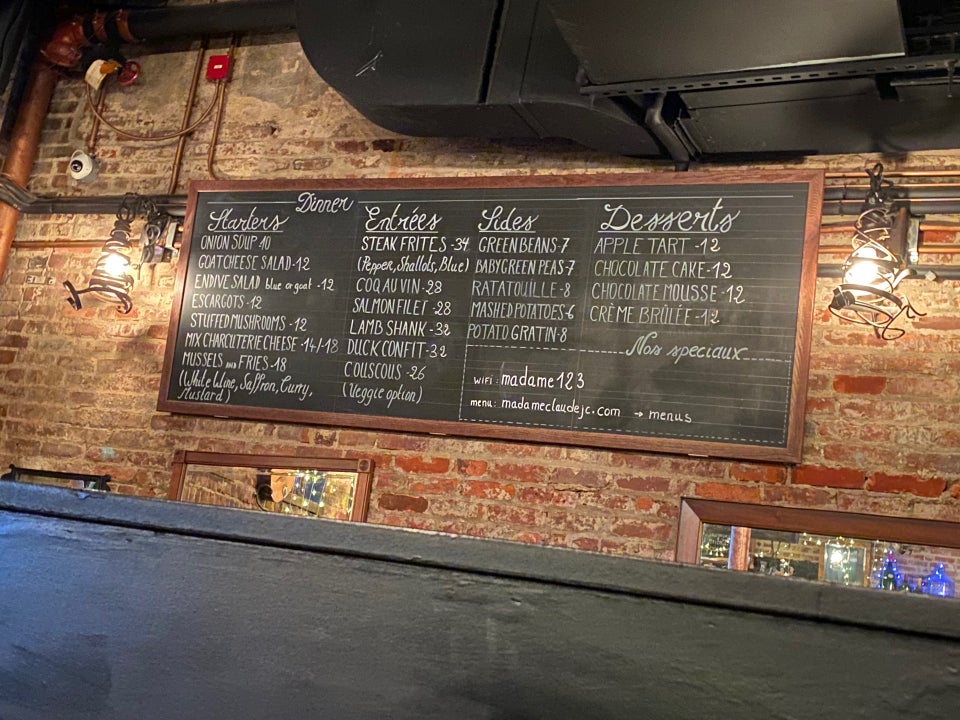 Dinner
Starters
ONION SOUP 10
GOAT CHEESE SALAD-12
ENDIVE SALAD blue or goat -12
ESCARGOTS -12
STUFFED MUSHROOMS -12
MIX CHARCUTERIE CHEESE -14/-18
MUSSELS AND FRIES -18
(White Wine, Saffron, Curry,
Mustard)
Entrées
STEAK FRITES -34
(Pepper, Shallots, Blue)
COQ AU VIN -28
SALMON FILET -28
LAMB SHANK -32
DUCK CONFIT -32
COUSCOUS -26
(Veggie option)
Sides
GREEN BEANS -7
BABY GREEN PEAS -7
RATATOUILLE -8
MASHED POTATOES -6
POTATO GRATIN -8
Desserts
APPLE TART -12
CHOCOLATE CAKE -12
CHOCOLATE MOUSSE -12
CRÈME BRÛLÉE -12
Nos speciaux
WIFI: madame123
menu: madameclaudejc.com → menus